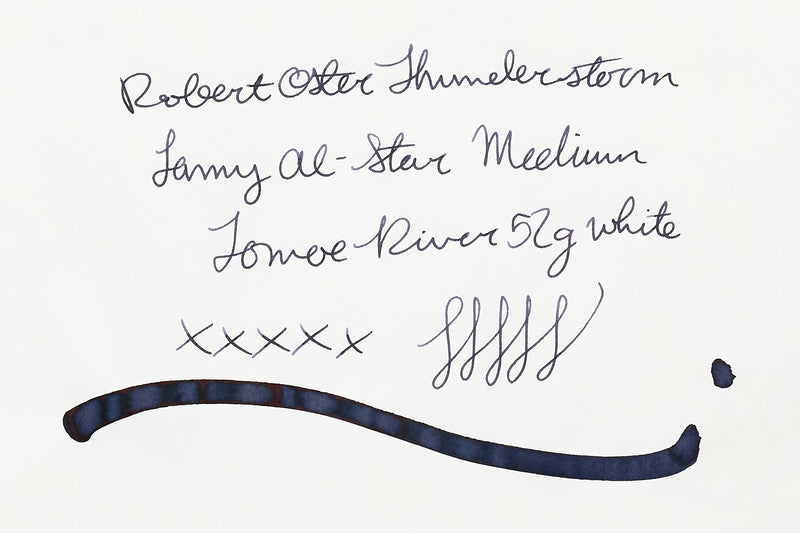 Robert Oster Thunderstorm
Lamy Al-Star Medium
Tomoe River 52g white
xxxxx